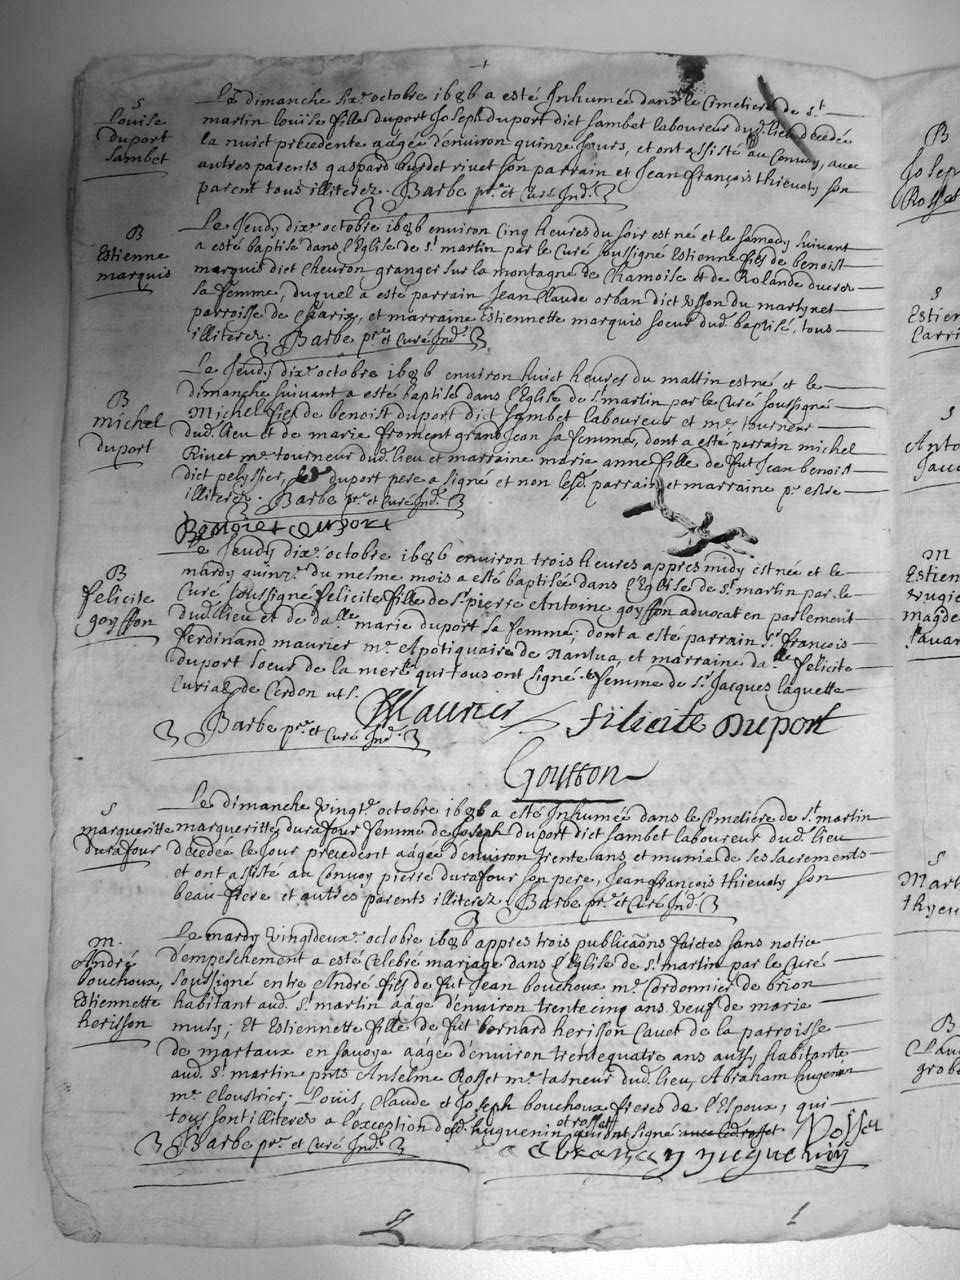 S
Louise
duport
sambet
Le dimanche six.e octobre 1686 a esté Inhumée dans le Cimetiere de s.t
martin louise fille duport Joseph duport dict sambet laboureur dud. lieu decedée
la nuict precedente aagée d'environ quinze Jours, et ont assisté au Convoy, avec
autres parents gaspard burdet rivet son parrain et Jean françois thievoly son
parent tous illiterez. Barbe p.re et Curé Ind.
B
Estienne
marquis
Le Jeudy dix.e octobre 1686 environ Cinq heures du soir est né et le samedy suivant
a esté baptisé dans l'Eglise de s.t martin par le Curé soussigné Estienne fils de benoist
marquis dict Chevron granger sur la montagne de Chamoise et de Rolande
sa femme, duquel a esté parrain Jean Claude orban dict du martynet
parroisse de et marraine Estiennette marquis soeur dud. baptisé, tous
illiterez. Barbe p.re et Curé Ind.
B
michel
duport
Le Jeudy dix.e octobre 1686 environ huict heures du mattin est né et le
dimanche suivant a esté baptisé dans l'Eglise de s.t martin par le Curé soussigné
Michel fils de benoist duport dict sambet laboureur et m.e tourneur
dud. lieu et de marie froment grand Jean sa femme, dont a esté parrain michel
Rivet m.e tourneur dud. lieu et marraine marie anne fille de fut Jean benoist
dict pelyssier, led. duport pere a signé et non lesd. parrain et marraine p.r estre
illiterez. Barbe p.re et Curé Ind.
Benoiet duport
B
felicite
goyffon
Le Jeudy dix.e octobre 1686 environ trois heures appres midy est née et le
mardy quinz.e du mesme mois a esté baptisée dans l'Eglise de s.t martin par le
Curé soussigné felicite fille de s.r pierre Antoine goyffon advocat en parlement
dud. lieu et de da.lle marie duport sa femme; dont a esté parrain s.r françois
Ferdinand maurier m.e Apotiquaire de Nantua, et marraine da.lle felicite
duport soeur de la mere qui tous ont signé. & femme de s.r Jacques laguette
Curial de Cerdon ut s.
Barbe p.re et Curé Ind. Maurier felicite Duport
Gouffon
S
margueritte
durafour
Le dimanche vingt.e octobre 1686 a esté Inhumée dans le Cimetiére de s.t martin
margueritte durafour femme de Joseph duport dict sambet laboureur dud. lieu
decedée le Jour precedent aagée d'environ trente ans et munie de ses sacrements
et ont assisté au Convoy pierre durafour son pere, Jean françois thievoly son
beau-frere et autres parents illiterez. Barbe p.re et Curé Ind.
m.
André
bouchoux,
Estiennette
herisson
Le mardy vingtdeux.e octobre 1686 appres trois publicaôns faictes sans notice
d'empeschement a esté Celebré mariage dans l'Eglise de s.t martin par le Curé
soussigné entre André fils de fut Jean bouchoux m.e Cordonnier de brion
habitant aud. s.t martin aagé d'environ trente cinq ans veuf de marie
musy; Et Estiennette fille de fut bernard herisson Cavet de la parroisse
de martaux en savoye aagée d'environ trentequatre ans aussy habitante
aud. s.t martin pnts Anselme Rosset m.e tasneur dud. lieu, Abraham hugenin
m.e Cloustrier; Louis, Claude et Joseph bouchoux freres de l'Espoux; qui
tous sont illiterez a l'exception desd. huguenin et rosset qui ont signé avec led rosset
Barbe p.re et Curé Ind. Rosset
abraham huguenin
B
Joseph
Rosset
S
Estien
Carri
S
Anto
Jacu
m
Estien
magde
S
Mart
thyeu
B
Clau
grob